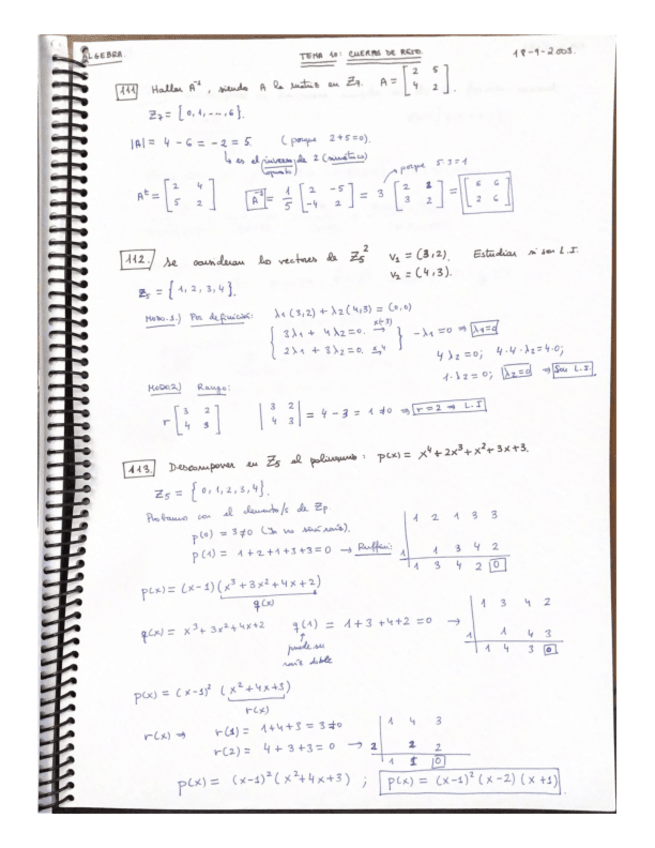 ALGEBRA. TEMA 10: CUERPOS DE RESTO. 18-9-2003.
111 Hallar A⁻¹, siendo A la matriz en Z₇. A = [2 5; 4 2].
Z₇ = {0,1,...,6}.
|A| = 4 - 6 = -2 = 5. (porque 2+5=0).
↳ es el inverso de 2 (simétrico)
(opuesto)
porque 5·3=1
Aᵗ = [2 4; 5 2] A⁻¹ = 1/5 [2 -5; -4 2] = 3 [2 2; 3 2] = [6 6; 2 6]
112. Se consideran los vectores de Z₅² v₁ = (3,2). Estudiar si son L.I.
v₂ = (4,3).
Z₅ = {1,2,3,4}.
MODO 1) Por definición: λ1(3,2) + λ2(4,3) = (0,0)
3λ1 + 4λ2 = 0. x(-3) → - λ1 = 0 ⇒ λ1=0
2λ1 + 3λ2 = 0. x4 → 4λ2 = 0; 4·4·λ2 = 4·0;
1·λ2 = 0; λ2=0 ⇒ Son L.I.
MODO 2) Rango:
r [3 2; 4 3] |3 2; 4 3| = 4 - 3 = 1 ≠ 0 ⇒ r = 2 ⇒ L.I
113. Descomponer en Z₅ el polinomio: p(x) = x⁴ + 2x³ + x² + 3x + 3.
Z₅ = {0,1,2,3,4}.
Probamos con el elemento/s de Zp.
p(0) = 3 ≠ 0 (Ya no será raíz).
p(1) = 1+2+1+3+3 = 0 → Ruffini:
1 2 1 3 3
1 1 3 4 2
1 3 4 2 0
p(x) = (x-1)(x³ + 3x² + 4x + 2)
q(x)
q(x) = x³ + 3x² + 4x + 2 q(1) = 1+3+4+2 = 0 →
puede ser
raíz doble
1 3 4 2
1 1 4 3
1 4 3 0
p(x) = (x-1)² (x² + 4x + 3)
r(x)
r(x) ⇒ r(1) = 1+4+3 = 3 ≠ 0
r(2) = 4+3+3 = 0 →
1 4 3
2 2 2
1 1 0
p(x) = (x-1)² (x² + 4x + 3) ; p(x) = (x-1)² (x-2) (x+1).